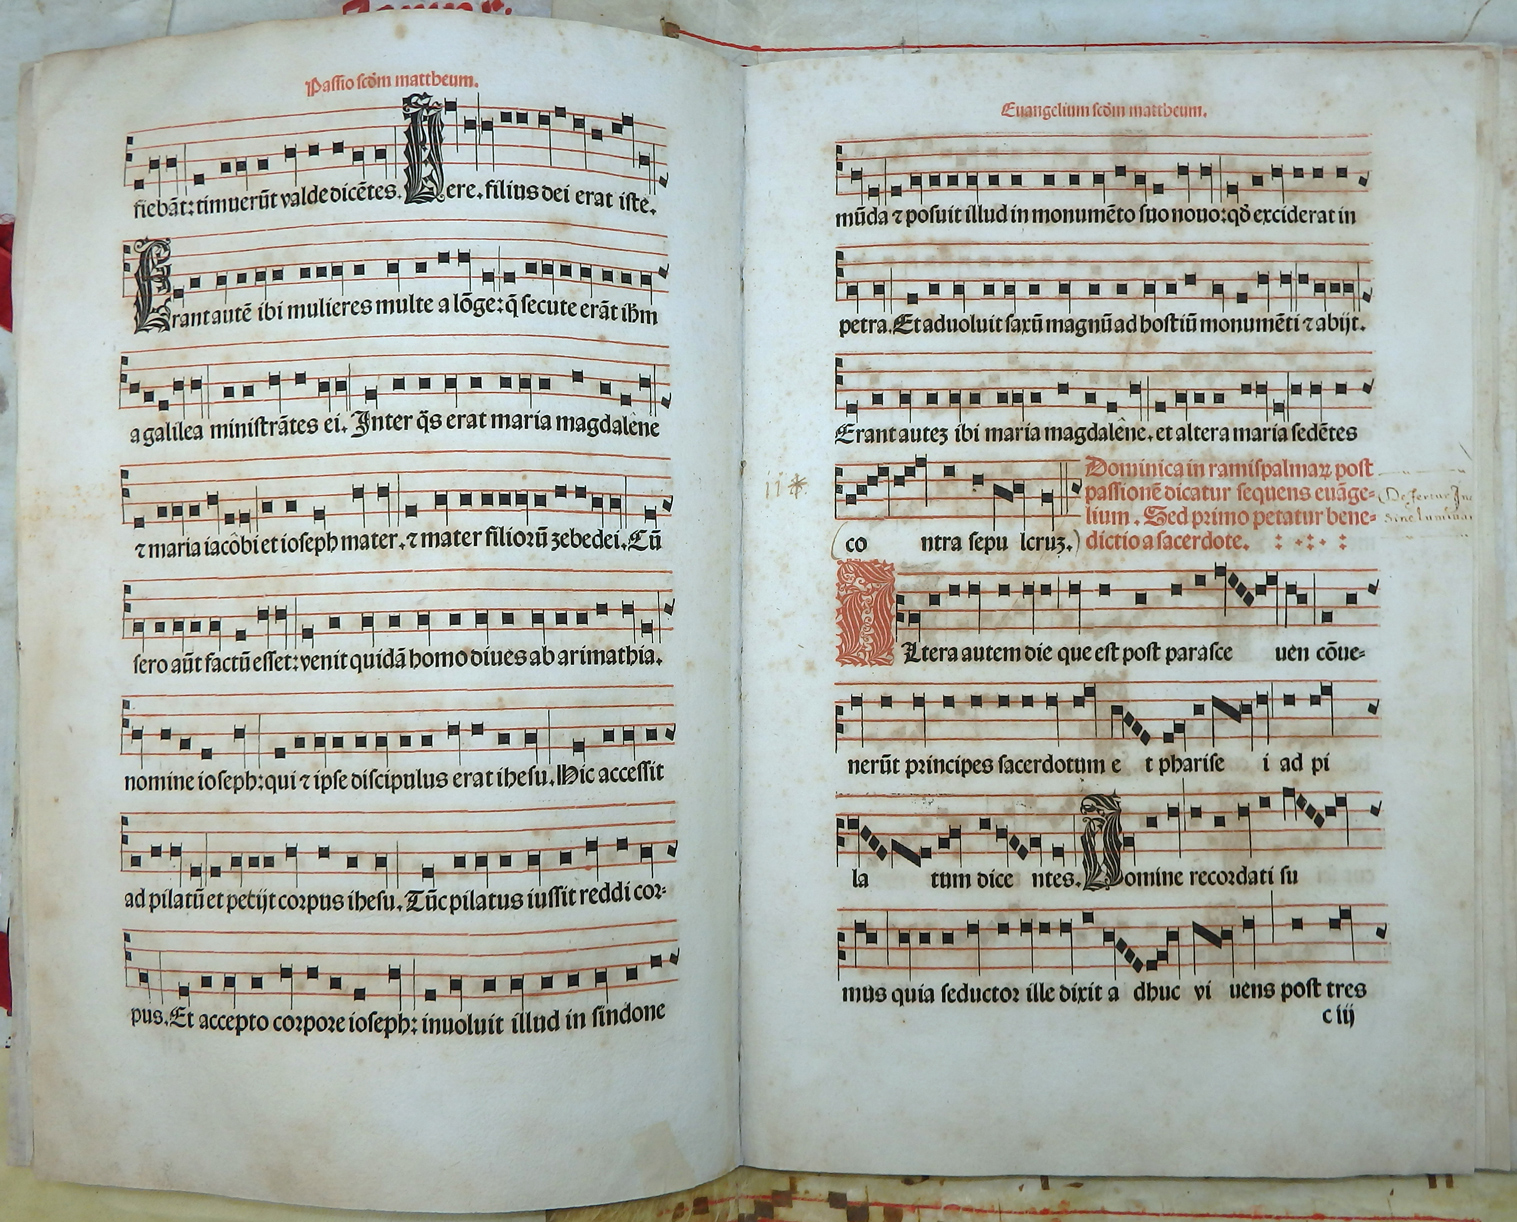 Passio scđm mattheum.
fiebāt: timuerūt valde dicētes. Uere. filius dei erat iste.
Erant autē ibi mulieres multe a lōge: q̄ secute erāt ihm̄
a galilea ministrātes ei. Inter q̄s erat maria magdalene
⁊ maria iacobi et ioseph mater. ⁊ mater filiorū zebedei. Cū
sero aūt factū esset: venit quidā homo diues ab arimathia.
nomine ioseph: qui ⁊ ipse discipulus erat ihesu. Hic accessit
ad pilatū et petijt corpus ihesu. Tūc pilatus iussit reddi cor-
pus. Et accepto corpore ioseph: inuoluit illud in sindone
Euangelium scđm mattheum.
mūda ⁊ posuit illud in monumēto suo nouo: qđ exciderat in
petra. Et aduoluit saxū magnū ad hostiū monumēti ⁊ abijt.
Erant autez ibi maria magdalene. et altera maria sedētes
co ntra sepu lcruz.
Dominica in ramispalmaꝝ post
passionē dicatur sequens euāge-
lium. Sed primo petatur bene-
dictio a sacerdote.
Altera autem die que est post parasce uen cōue-
nerūt principes sacerdotum e t pharise i ad pi
la tum dice ntes. Domine recordati su
mus quia seductor ille dixit a dhuc vi uens post tres
c iij